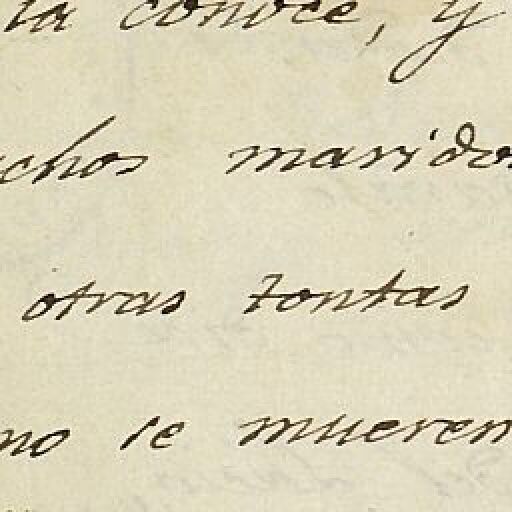 la conoce, y
chos maridos
otras tontas
no se mueren